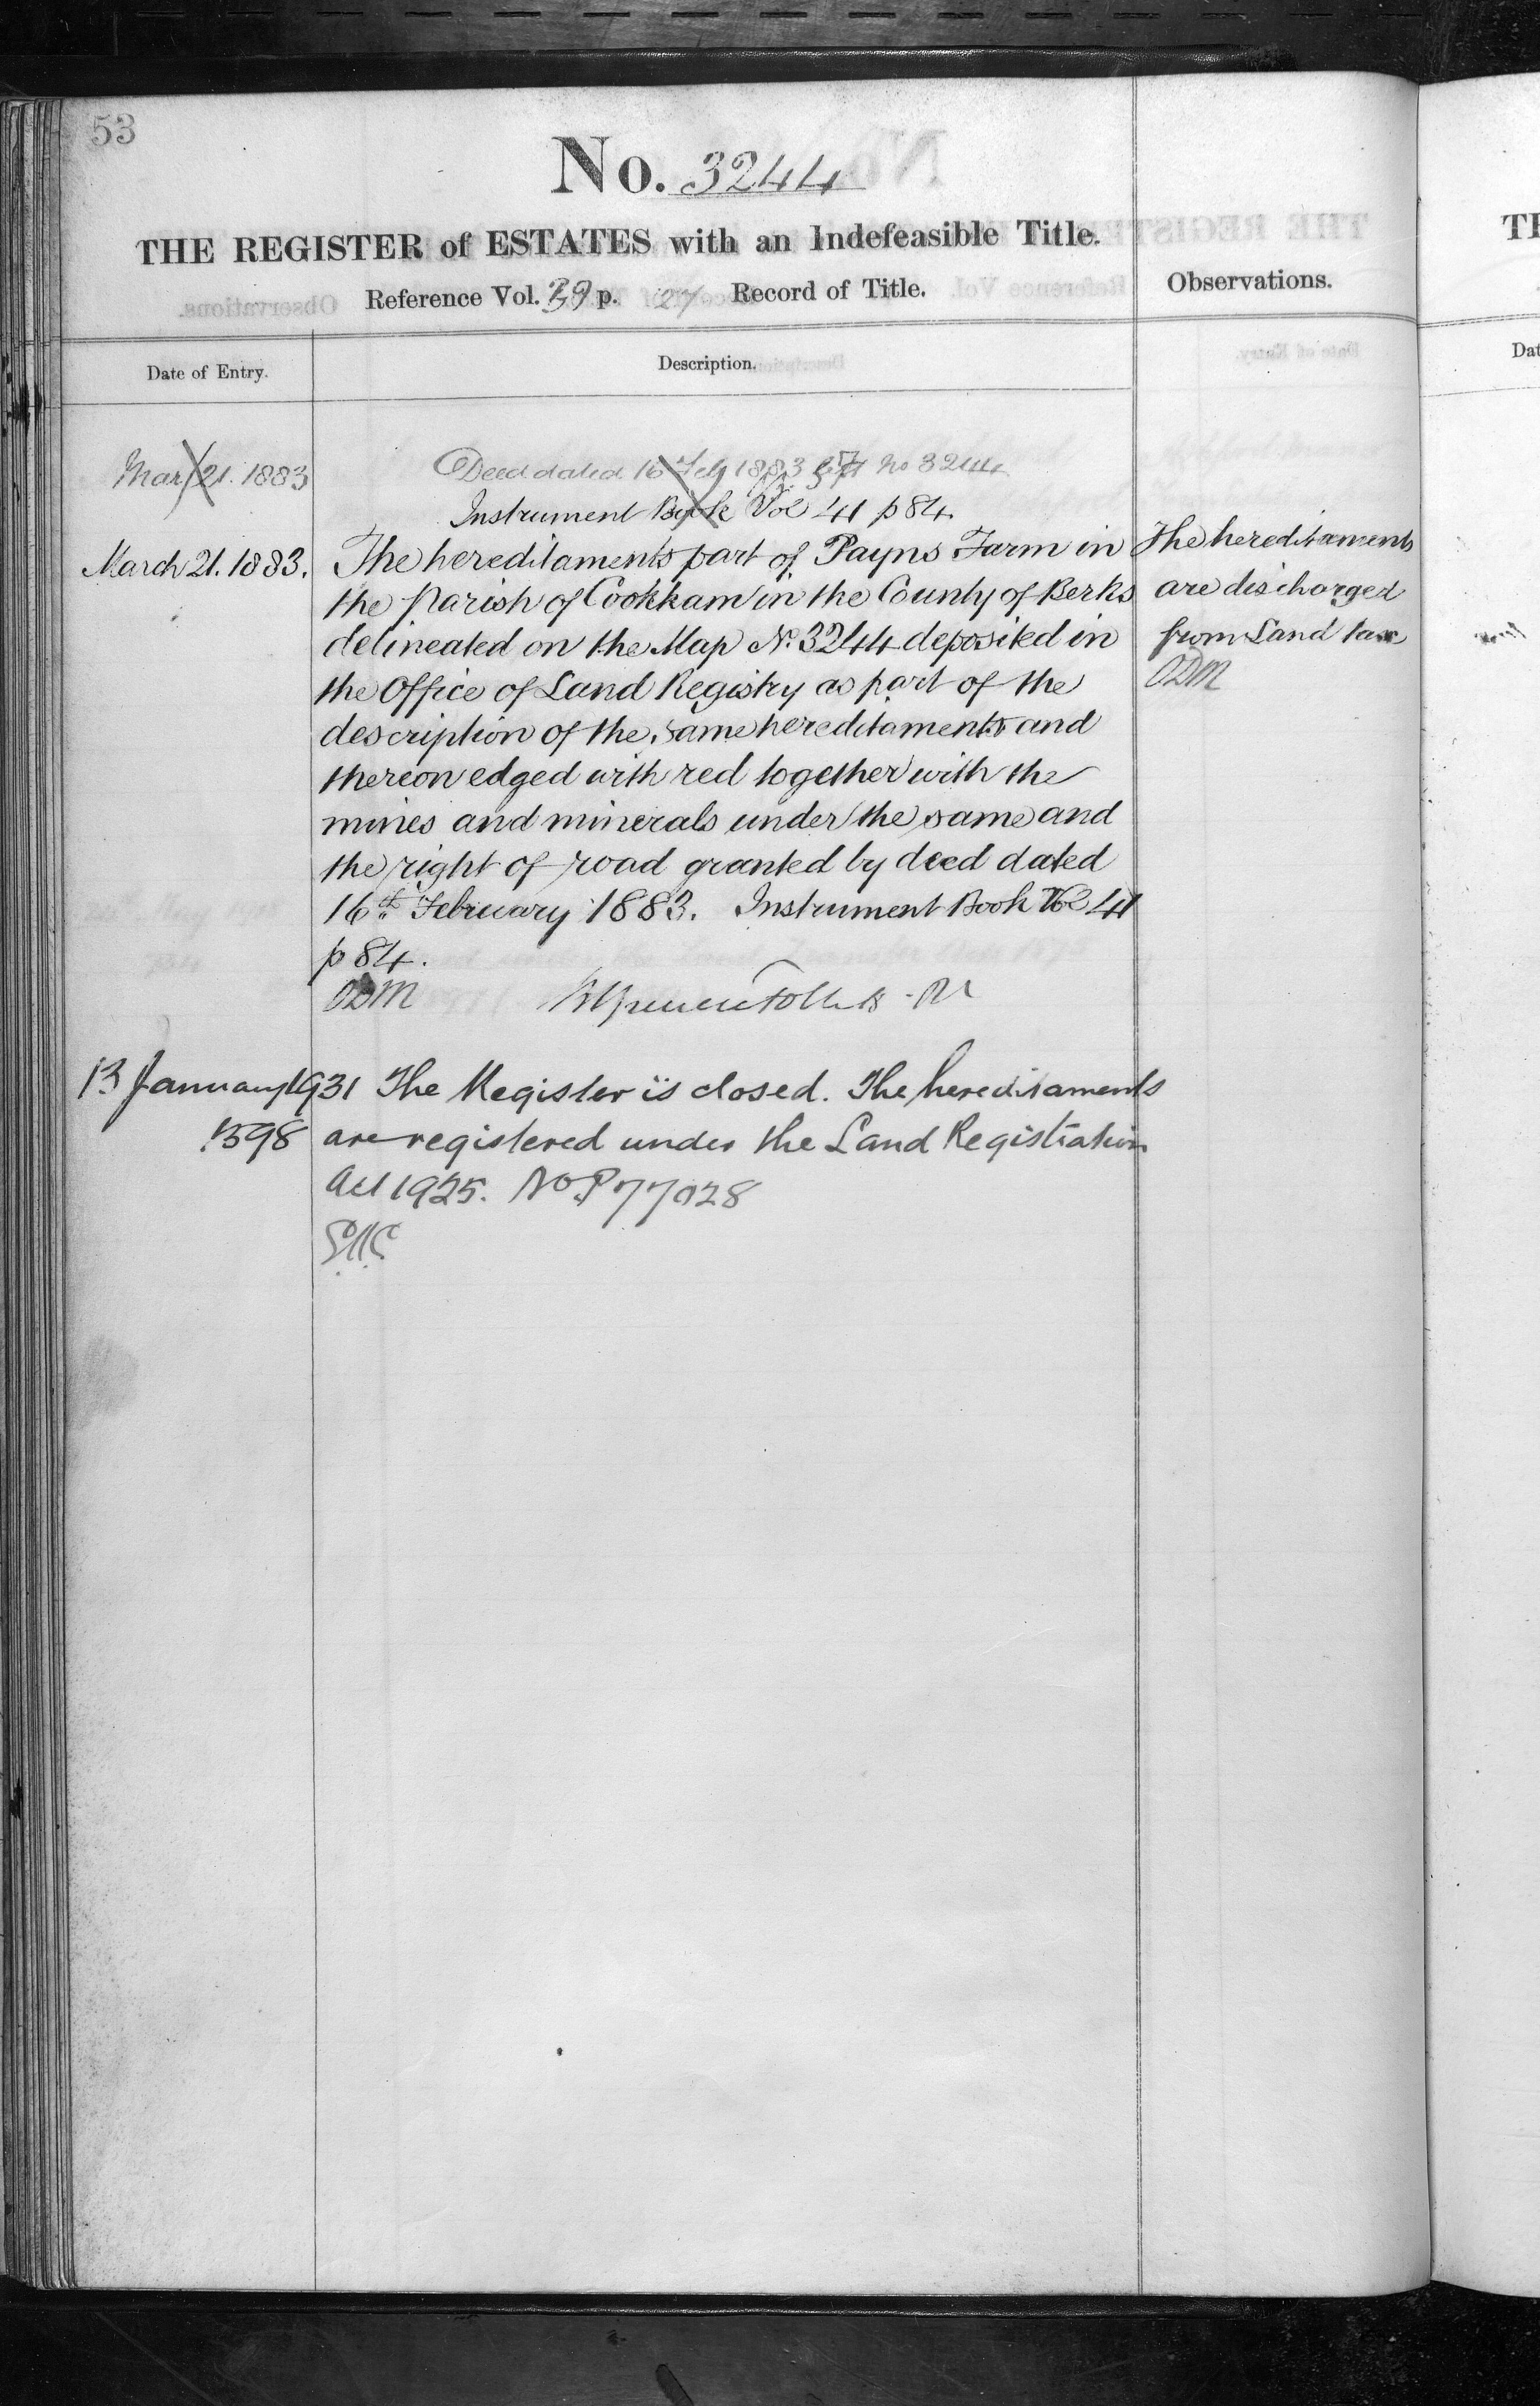 53
No. 3244
THE REGISTER of ESTATES with an Indefeasible Title.
Reference Vol. 39 p. 27 Record of Title.
Observations.
Date of Entry.
Description.
Mar 21. 1883
Deed dated 16 Feb 1883 No 3244
Instrument Book Vol 41 p 84
March 21. 1883.
The hereditaments part of Payns Farm in
the Parish of Cookham in the County of Berks
delineated on the Map No. 3244 deposited in
the Office of Land Registry as part of the
description of the same hereditaments and
thereon edged with red together with the
mines and minerals under the same and
the right of road granted by deed dated
16th February 1883. Instrument Book Vol 41
p 84.
ODM
The hereditaments
are discharged
from Land tax
ODM
13 January 1931 The Register is closed. The hereditaments
1598 are registered under the Land Registration
Act 1925. No P77028